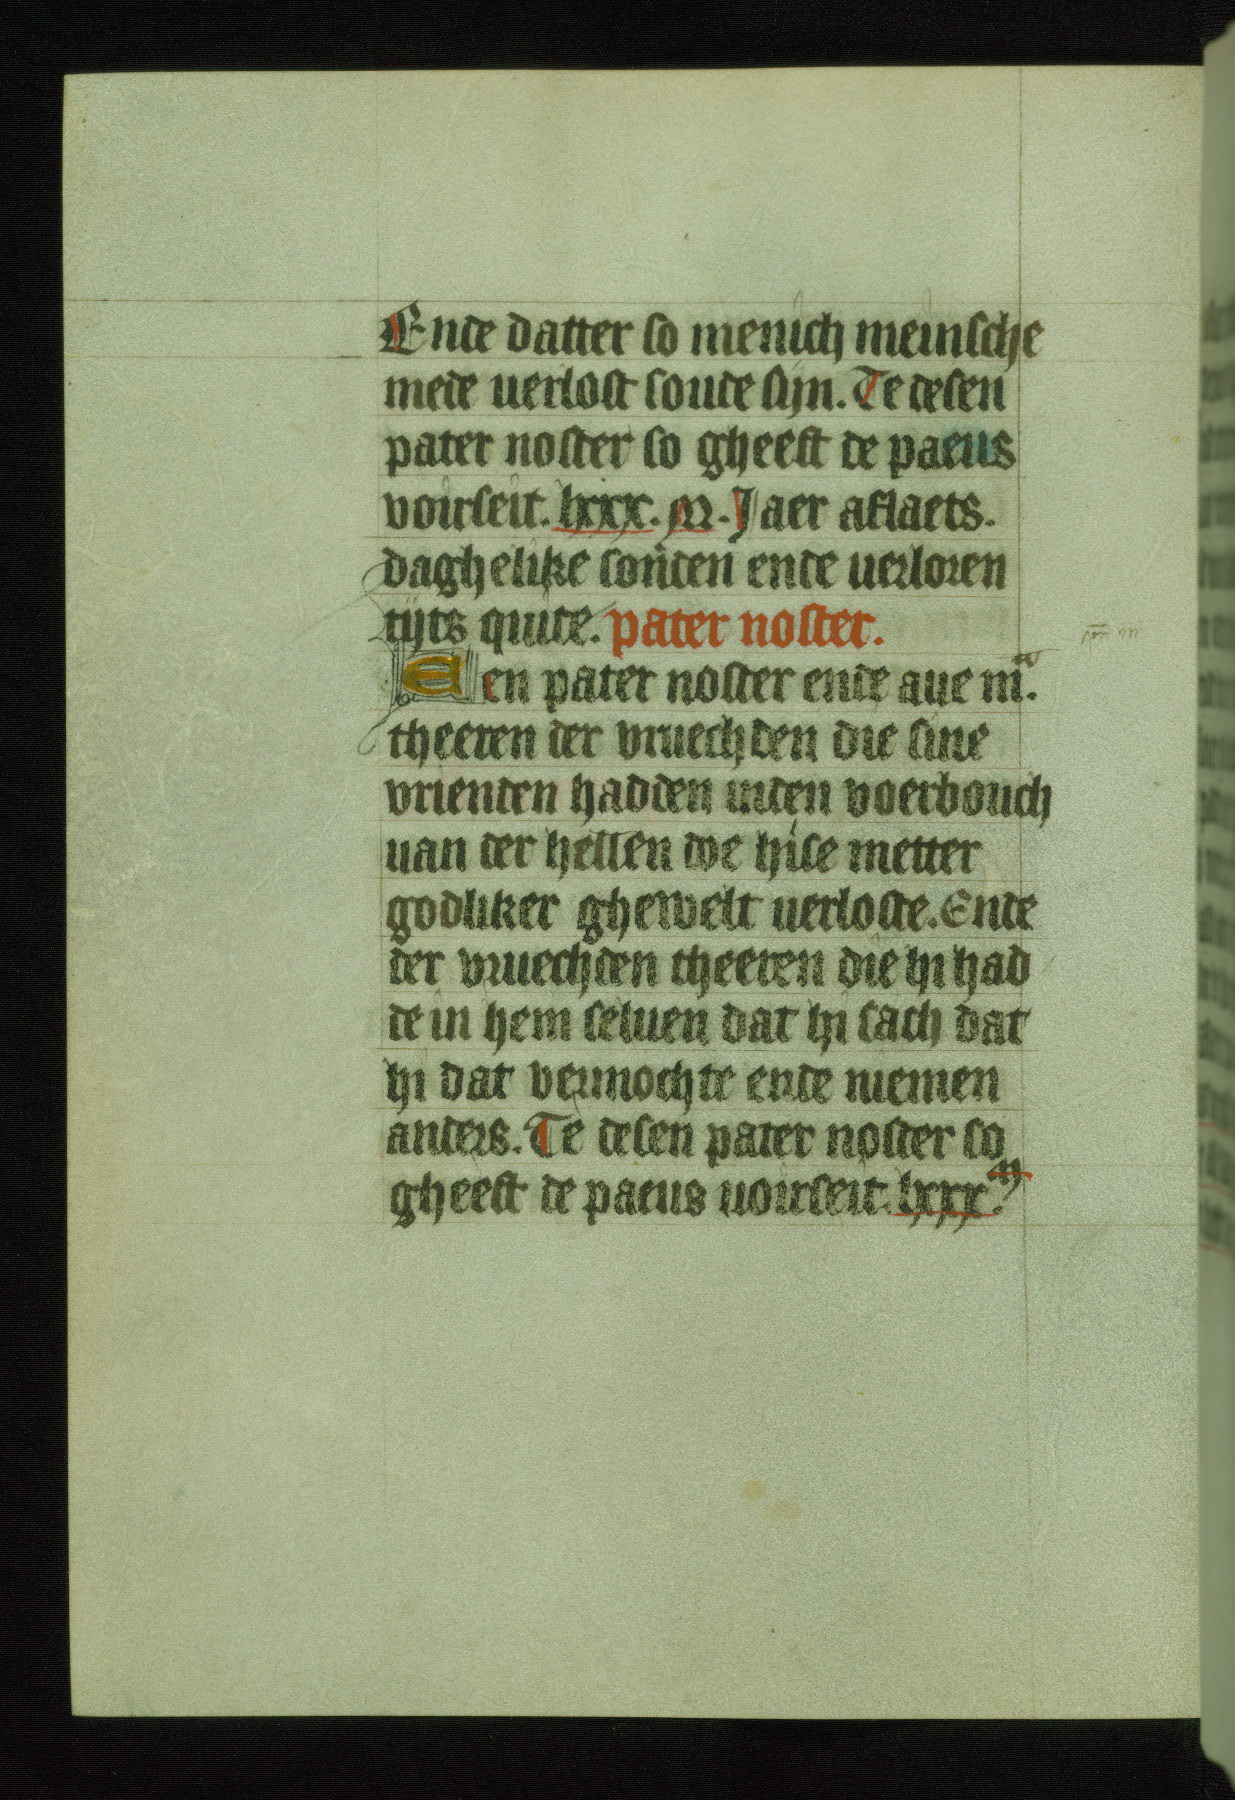 Ende datter so menich meinsche
mede uerlost soude sijn. Te desen
pater noster so gheeft de paeus
voirseit. lxxx. M. Jaer aflaets.
daghelike sonden ende uerloren
tijts quite. pater noster.
Een pater noster ende aue mª.
theeren der vruechden die sine
vrienden hadden inden voerbouch
uan der hellen doe hise metter
godliker ghewelt uerloste. Ende
der vruechden theeren die hi had
de in hem seluen dat hi sach dat
hi dat vermochte ende niemen
anders. Te desen pater noster so
gheeft de paeus uoirseit. lxxx. M